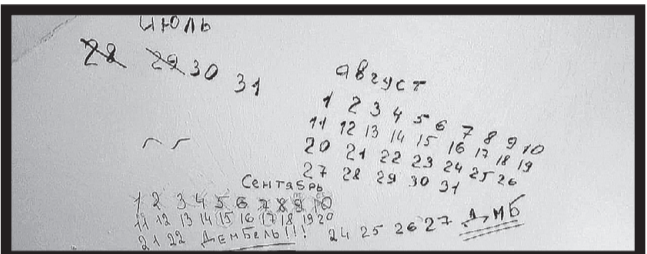 июль
28 29 30 31
август
1 2 3 4 5 6 7 8 9 10
11 12 13 14 15 16 17 18 19
20 21 22 23 24 25 26
27 28 29 30 31
Сентябрь
1 2 3 4 5 6 7 8 9 10
11 12 13 14 15 16 17 18 19 20
21 22 Дембель!!! 24 25 26 27 ДМБ